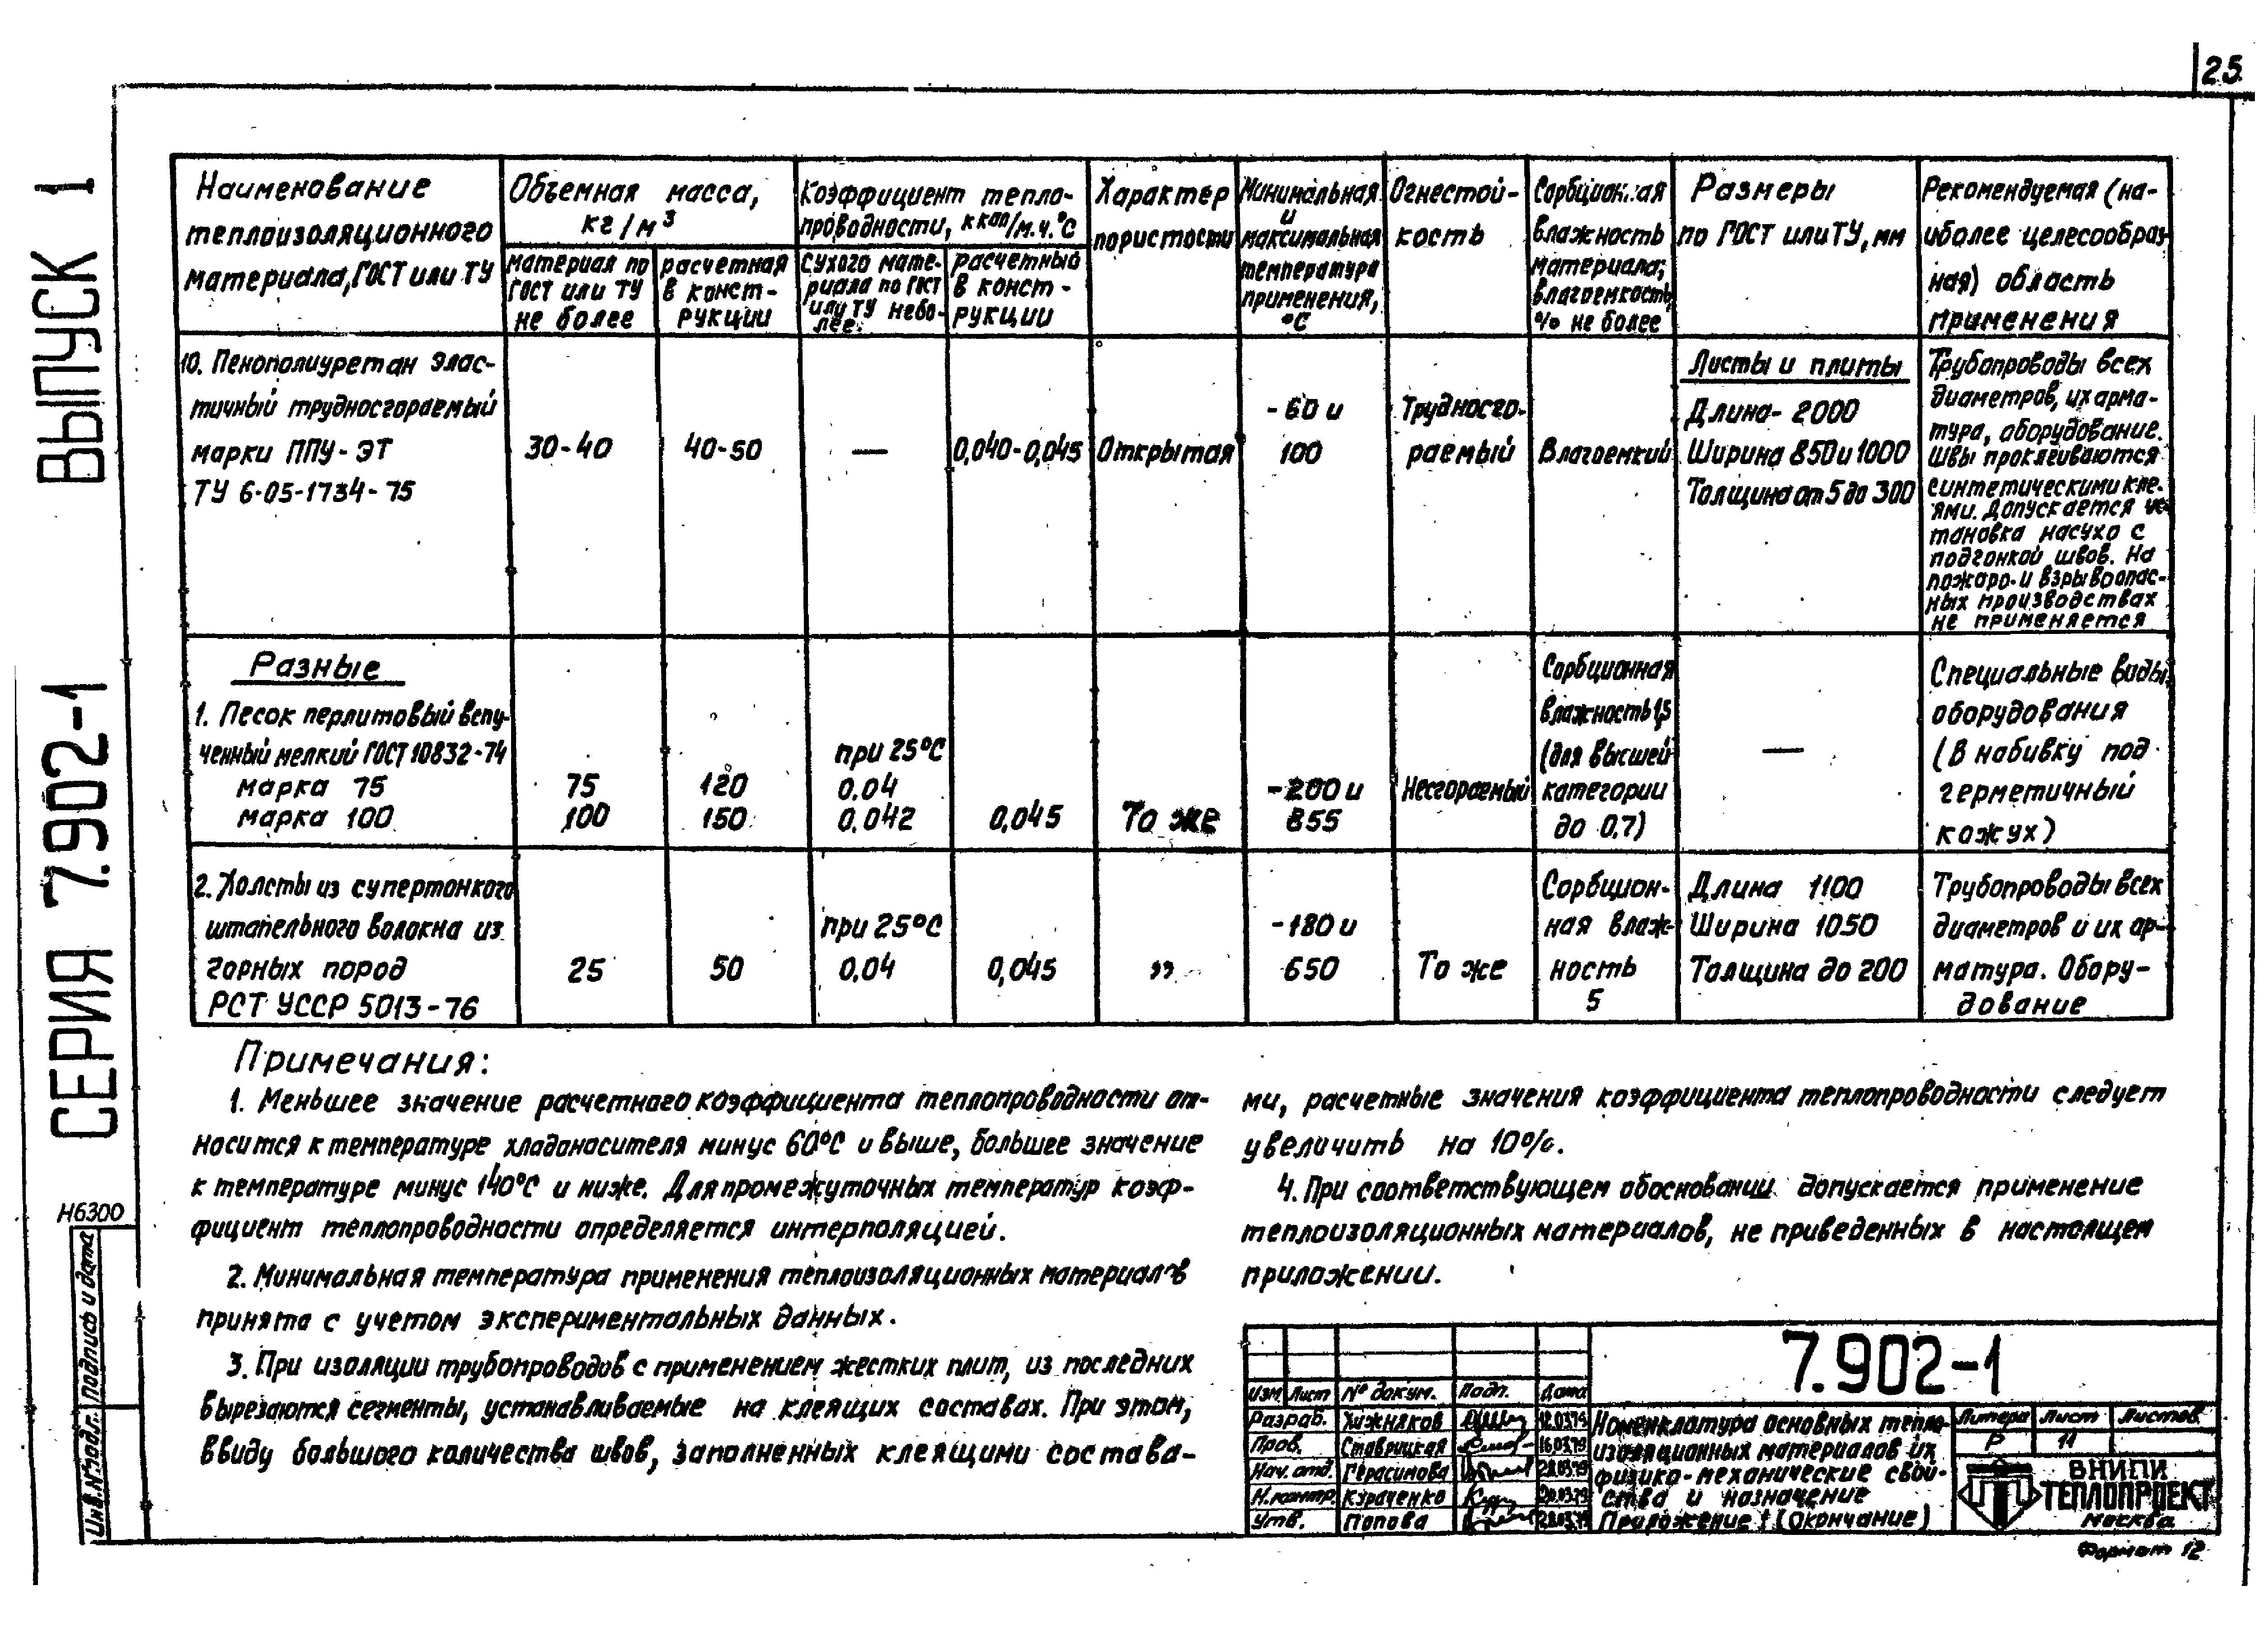 25
ВЫПУСК 1
СЕРИЯ 7.902-1
Н6300
Подпись и дата
Инв.№подл.
Наименование
теплоизоляционного
материала, ГОСТ или ТУ
Объемная масса,
кг/м³
материал по
ГОСТ или ТУ
не более
расчетная
в конст-
рукции
Коэффициент тепло-
проводности, ккал/м.ч.°С
сухого мате-
риала по ГОСТ
или ТУ небо-
лее
расчетный
в конст-
рукции
Характер
пористости
Минимальная
и
максимальная
температура
применения,
°С
Огнестой-
кость
Сорбционная
влажность
материала;
влагоемкость,
% не более
Размеры
по ГОСТ или ТУ, мм
Рекомендуемая (на-
иболее целесообраз-
ная) область
применения
10. Пенополиуретан элас-
тичный трудносгораемый
марки ППУ-ЭТ
ТУ 6-05-1734-75
30-40
40-50
—
0,040-0,045
Открытая
-60 и
100
Трудносго-
раемый
Влагоемкий
Листы и плиты
Длина- 2000
Ширина 850 и 1000
Толщина от 5 до 300
Трубопроводы всех
диаметров, их арма-
тура, оборудование.
Швы проклеиваются
синтетическими кле-
ями. Допускается ус-
тановка насухо с
подгонкой швов. На
пожаро- и взрывоопас-
ных производствах
не применяется
Разные
1. Песок перлитовый вспу-
ченный мелкий ГОСТ 10832-74
марка 75
марка 100
75
100
120
150
при 25°С
0.04
0.042
0,045
То же
-200 и
855
Несгораемый
Сорбционная
влажность 1,5
(для высшей
категории
до 0,7)
—
Специальные виды
оборудования
(В набивку под
герметичный
кожух)
2. Холсты из супертонкого
штапельного волокна из
горных пород
РСТ УССР 5013-76
25
50
при 25°С
0.04
0,045
"
-180 и
650
То же
Сорбцион-
ная влаж-
ность
5
Длина 1100
Ширина 1050
Толщина до 200
Трубопроводы всех
диаметров и их ар-
матура. Обору-
дование
Примечания:
1. Меньшее значение расчетного коэффициента теплопроводности от-
носится к температуре хладоносителя минус 60°С и выше, большее значение
к температуре минус 140°С и ниже. Для промежуточных температур коэф-
фициент теплопроводности определяется интерполяцией.
2. Минимальная температура применения теплоизоляционных материалов
принята с учетом экспериментальных данных.
3. При изоляции трубопроводов с применением жестких плит, из последних
вырезаются сегменты, устанавливаемые на клеящих составах. При этом,
ввиду большого количества швов, заполненных клеящими состава-
ми, расчетные значения коэффициента теплопроводности следует
увеличить на 10%.
4. При соответствующем обосновании допускается применение
теплоизоляционных материалов, не приведенных в настоящем
приложении.
Изм Лист № докум. Подп. Дата
Разраб. Хижняков 12.03.79
Пров. Ставрицкая 16.03.79
Нач. отд. Герасимова 28.03.79
Н.контр. Кураченко 20.03.79
Утв. Попова 28.03.79
7.902-1
Номенклатура основных тепло-
изоляционных материалов их
физико-механические свой-
ства и назначение
Приложение 1 (Окончание)
Литера Лист Листов
Р 11
ВНИПИ
ТЕПЛОПРОЕКТ
Москва
Формат 12